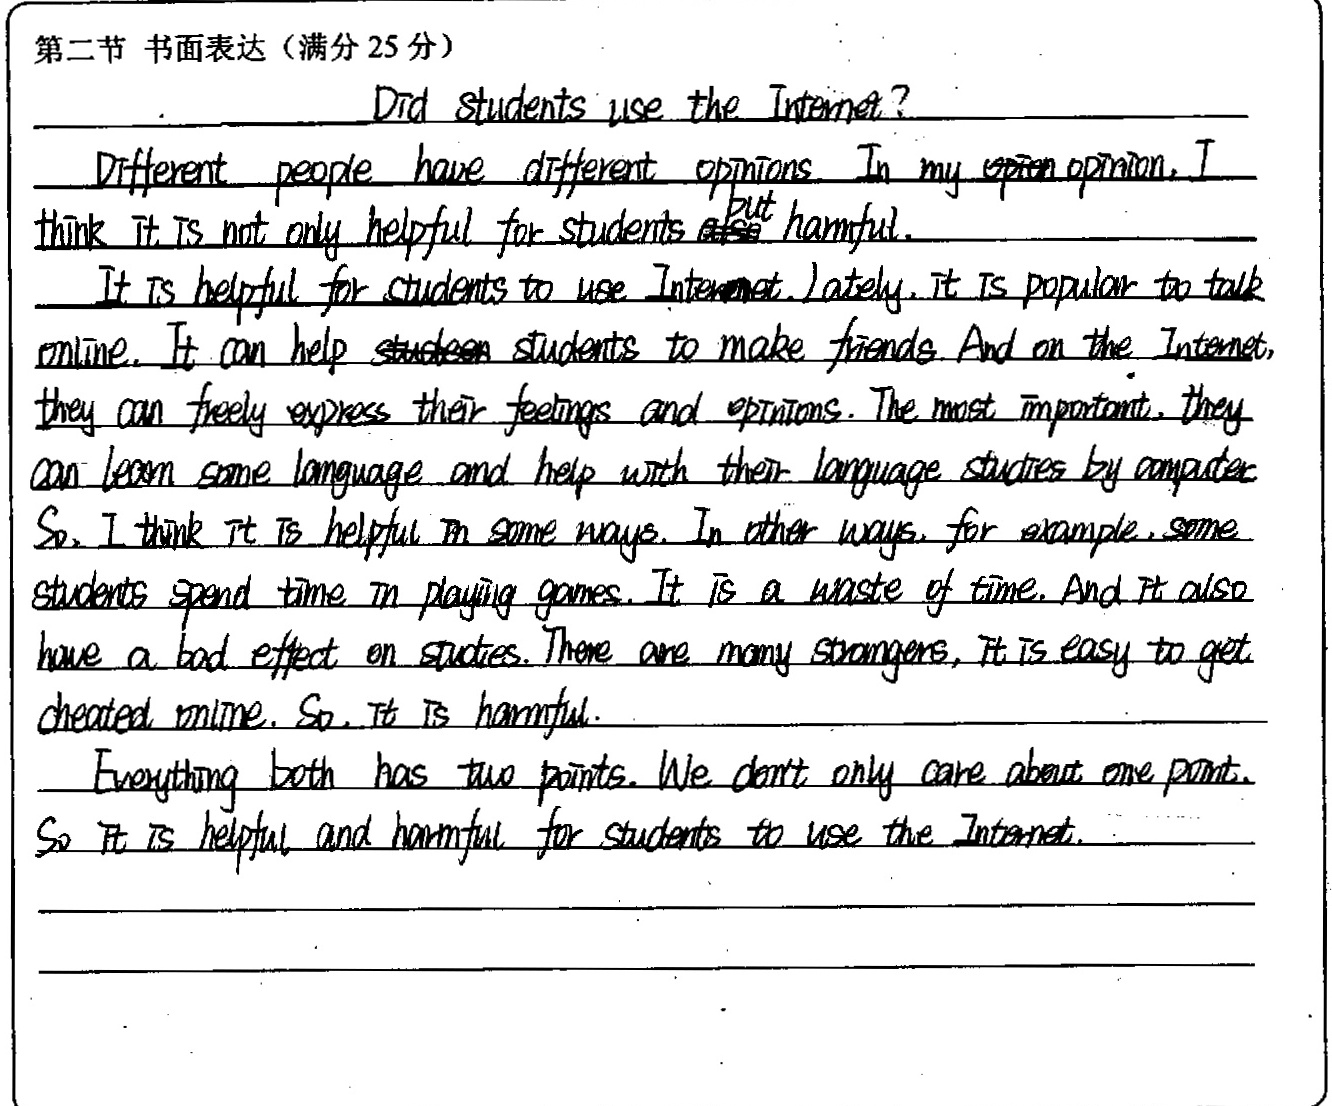 第二节 书面表达（满分 25 分）
Did students use the Internet?
Different people have different opinions. In my opinion, I
think it is not only helpful for students but harmful.
It is helpful for students to use Internet. Lately, it is popular to talk
online. It can help students to make friends. And on the Internet,
they can freely express their feelings and opinions. The most important, they
can learn some language and help with their language studies by computer.
So, I think it is helpful in some ways. In other ways, for example, some
students spend time in playing games. It is a waste of time. And it also
have a bad effect on studies. There are many strangers, it is easy to get
cheated online. So, it is harmful.
Everything both has two points. We don't only care about one point.
So it is helpful and harmful for students to use the Internet.